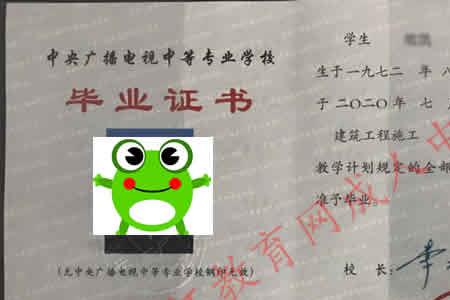 中央广播电视中等专业学校
毕业证书
(无中央广播电视中等专业学校钢印无效)
学生
生于一九七二年 八
于二〇二〇年 七
建筑工程施工
教学计划规定的全部
准予毕业。
校 长: 李
教育网成人中